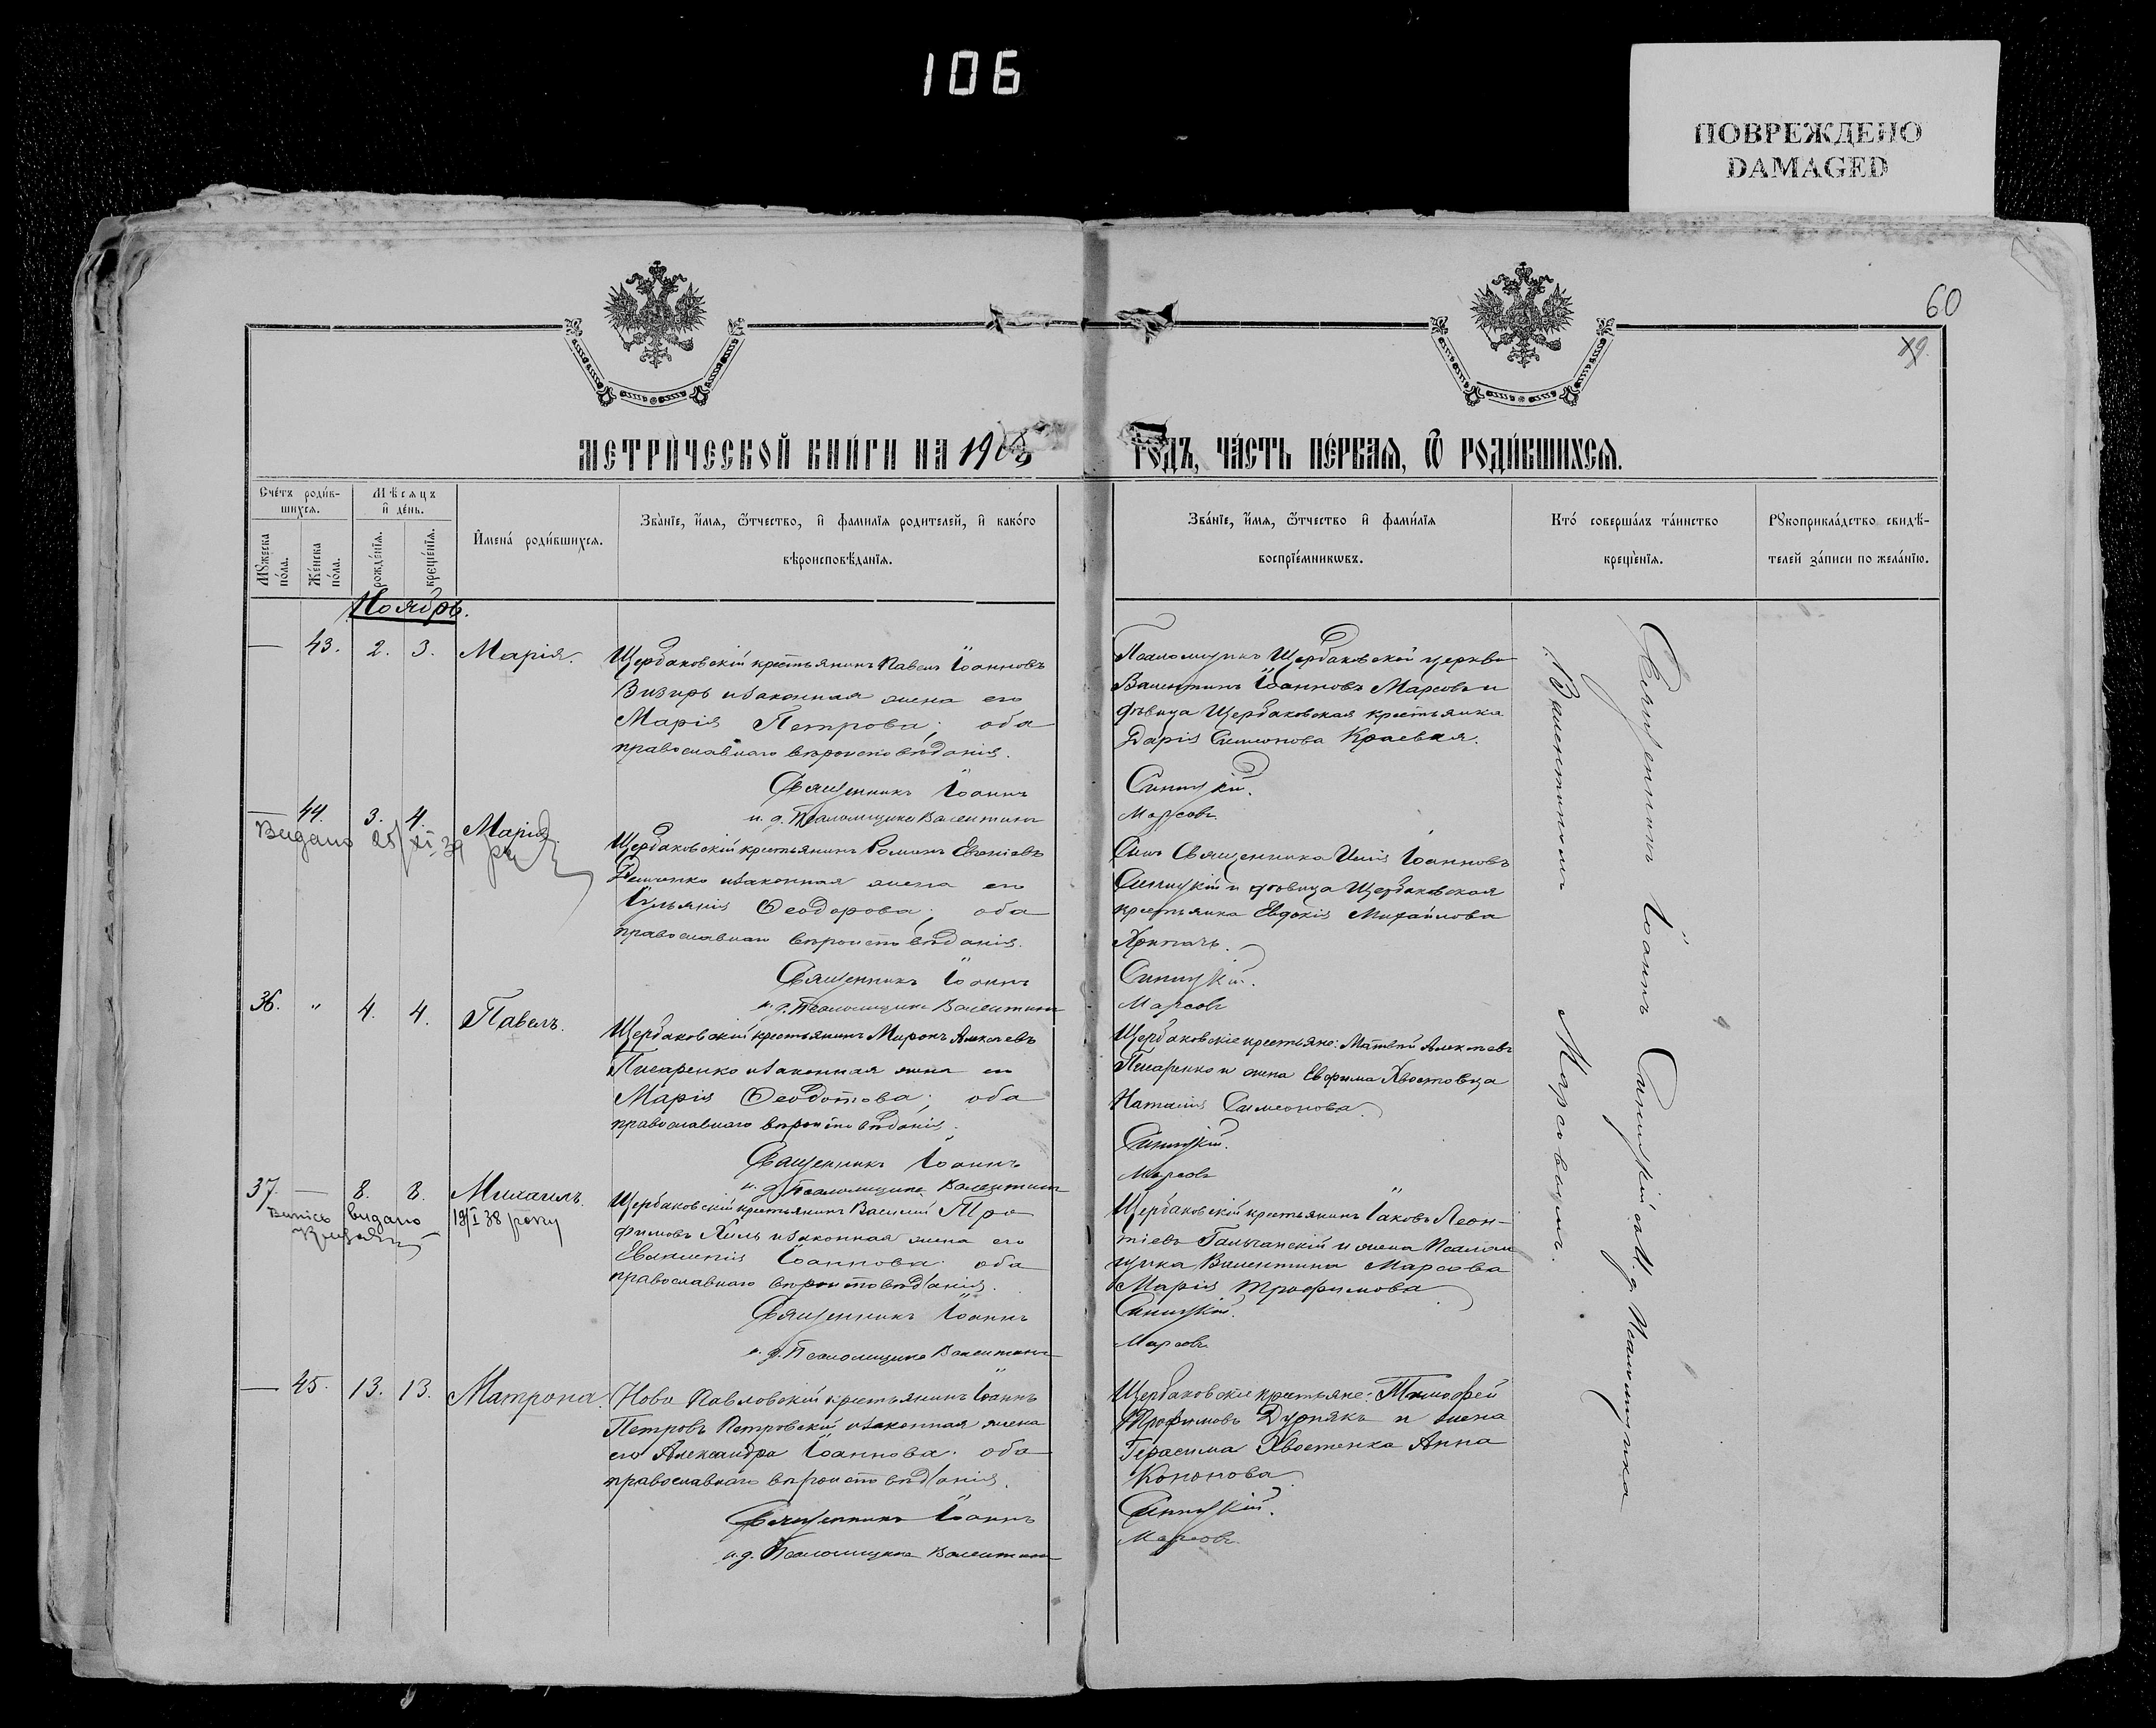 106
ПОВРЕЖДЕНО
DAMAGED
60
МЕТРИ́ЧЕСКОЙ КНИ́ГИ НА 190
ГОДЪ, ЧА́СТЬ ПЕ́РВАЯ, Ѿ РОДИ́ВШИХСЯ.
Сче́тъ роди́в-
шихся.
Мѣсяцъ
и де́нь.
Мꙋжеска
по́ла.
Же́нска
по́ла.
рожде́нїя.
креще́нїя.
Имена́ роди́вшихся.
Зва́нїе, и́мя, ѻ́тчество, и фамилїя родителей, и како́го
вѣроисповѣданїя.
Зва́нїе, и́мя, ѻ́тчество и фами́лїя
воспрїе́мникѡвъ.
Кто́ соверша́лъ та́инство
креще́нїя.
Рꙋкоприкла́дство свидѣ́-
телей за́писи по жела́нїю.
Ноябрь.
— 43. 2. 3. Марія.
Щербаковскій крестьянинъ Павелъ Іоанновъ
Визирь и законная жена его
Марія Петрова; оба
православнаго вѣроисповѣданія.
Священникъ Іоаннъ
и. д. Псаломщика Валентинъ
Псаломщикъ Щербаковской церкви
Валентинъ Іоанновъ Марсовъ и
дѣвица Щербаковская крестьянка
Дарія Симеонова Краевая.
Синицкій.
Марсовъ
— 44. 3. 4. Марія.
Видано 25/XI 39 р.
Щербаковскій крестьянинъ Романъ
и законная жена его
Іуліанія Ѳеодорова; оба
православнаго вѣроисповѣданія.
Священникъ Іоаннъ
и. д. Псаломщика Валентинъ
Сынъ Священника Іоанновъ
Синицкій и дѣвица Щербаковская
крестьянка Евдокія Михайлова
Хрипачъ.
Синицкій.
Марсовъ
36. " 4. 4. Павелъ.
Щербаковскій крестьянинъ Миронъ Алексѣевъ
Писаренко и законная жена его
Марія Ѳеодотова; оба
православнаго вѣроисповѣданія.
Священникъ Іоаннъ
и. д. Псаломщика Валентинъ
Щербаковскіе крестьяне: Матвѣй Алексѣевъ
Писаренко и жена Евфима Хвостовца
Наталія Симеонова.
Синицкій.
Марсовъ
37. — 8. 8. Михаилъ.
Випись видано 19/I 38 року
Щербаковскій крестьянинъ Василій Тро
фимовъ Хиль и законная жена его
Евгенія Іоаннова; оба
православнаго вѣроисповѣданія.
Священникъ Іоаннъ
и. д. Псаломщика Валентинъ
Щербаковскій крестьянинъ Іаковъ Леон-
тіевъ Гальчанскій и жена Псалом
щика Валентина Марсова
Марія Трофимова
Синицкій.
Марсовъ
— 45. 13. 13. Матрона.
Ново Павловскій крестьянинъ Іоаннъ
Петровъ Петровскій и законная жена
его Александра Іоаннова; оба
православнаго вѣроисповѣданія.
Священникъ Іоаннъ
и. д. Псаломщика Валентинъ
Щербаковскіе крестьяне: Тимофей
Трофимовъ Дурнякъ и жена
Герасима Хвостенка Анна
Кононова
Синицкій.
Марсовъ
Священникъ Іоаннъ Синицкій съ И. д. Псаломщика
Валентиномъ Марсовымъ.